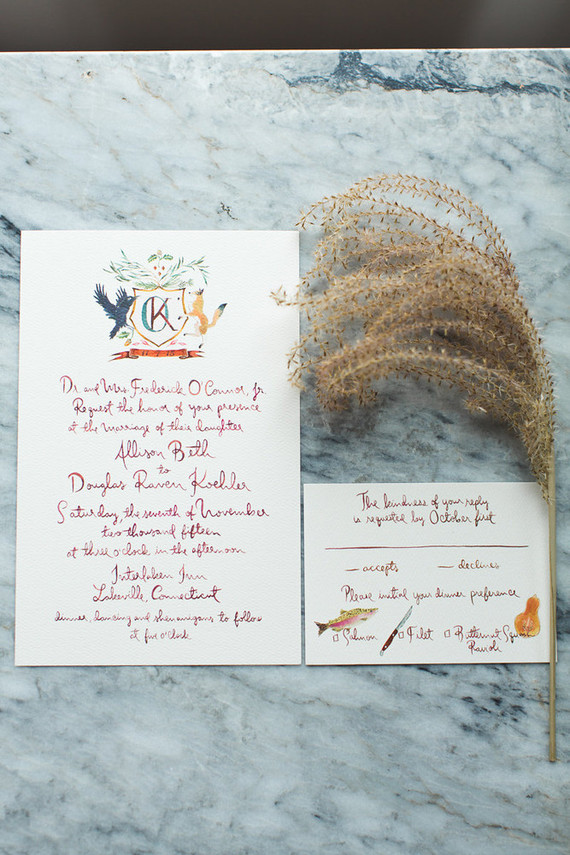 OK
Dr. and Mrs. Frederick O'Connor, Jr.
Request the honor of your presence
at the marriage of their daughter
Allison Beth
to
Douglas Raven Koehler
Saturday, the seventh of November
two thousand fifteen
at three o'clock in the afternoon
Interlaken Inn
Lakeville, Connecticut
dinner, dancing and shenanigans to follow
at five o'clock
The kindness of your reply
is requested by October first
accepts declines
Please initial your dinner preference
Salmon Filet Butternut Squash
Ravioli